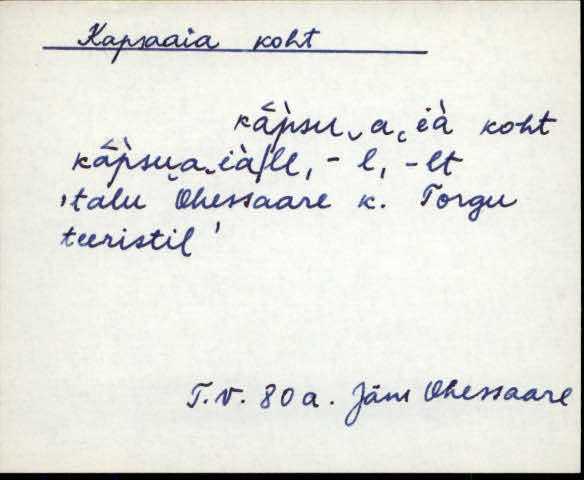 Kapsaaia koht
kầpsu‿a‿ià koht
kầpsu‿a‿ià/lle, -l, -lt
'talu Ohessaare k. Torgu
teeristil'
T.V. 80 a. Jäm Ohessaare